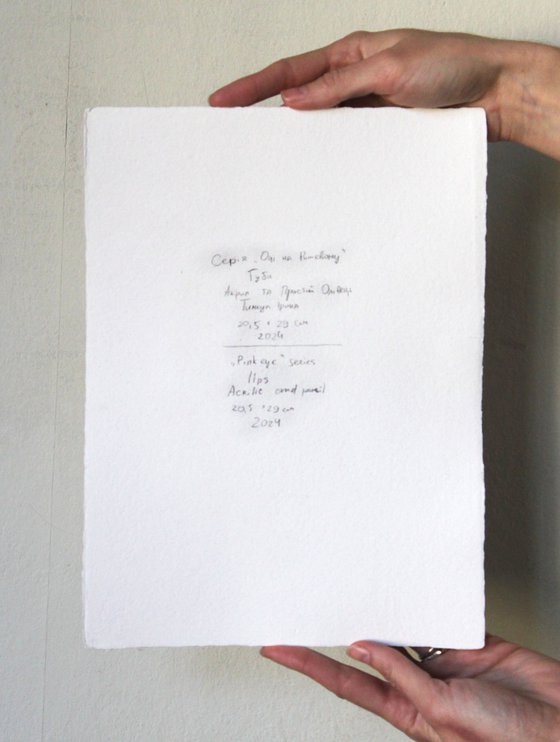 Серія „Очі на
Губи
Акрил та Простий Олівець
Ірина
20,5 × 29 см
2024
„Pink eye“ series
lips
Acrilic and pencil
20,5 × 29 cm
2024